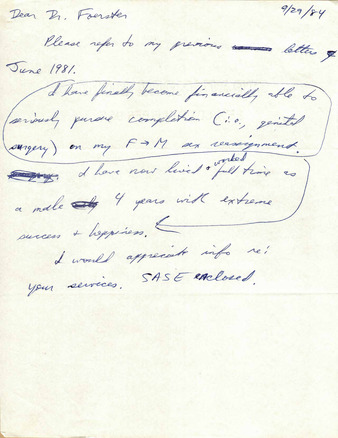 9/29/84
Dear Dr. Foerster
Please refer to my previous letter of
June 1981.
I have finally become financially able to
seriously pursue completion (i.e., genital
surgery) on my F→M sex reassignment.
I have now lived + worked full time as
a male 4 years with extreme
success + happiness.
I would appreciate info re:
your services. SASE enclosed.